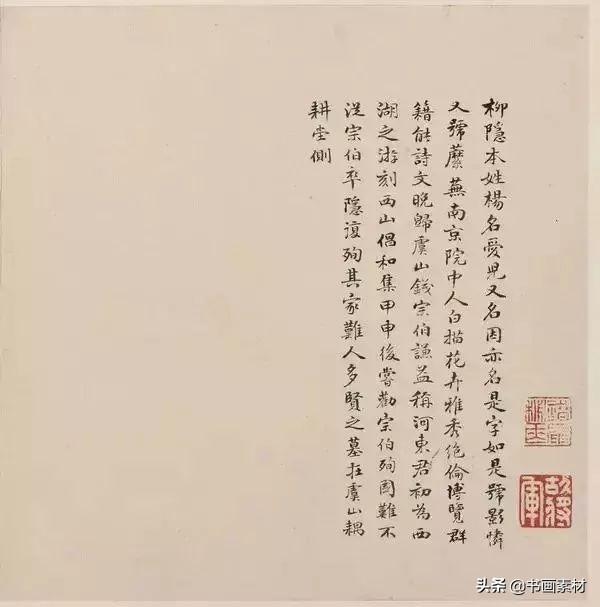 柳隱本姓楊名愛兒又名因亦名是字如是號影憐
又號蘼蕪南京院中人白描花卉雅秀絕倫博覽群
籍能詩文晚歸虞山錢宗伯謙益稱河東君初為西
湖之游刻西山倡和集甲申後嘗勸宗伯殉國難不
從宗伯卒隱復殉其家難人多賢之墓在虞山耦
耕堂側
头条 @书画素材